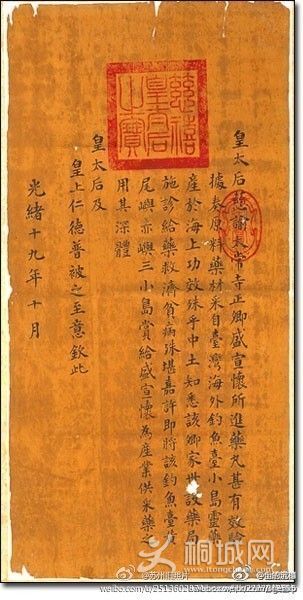 慈禧
皇后
之寶
皇太后慈諭太常寺正卿盛宣懷所進藥丸甚有效驗
據奏原料藥材采自臺灣海外釣魚臺小島靈藥
產於海上功效殊乎中土知悉該卿家世設藥局
施診給藥救濟貧病殊堪嘉許即將該釣魚臺黃
尾嶼赤嶼三小島賞給盛宣懷為產業供采藥之
用其深體
皇太后及
皇上仁德普被之至意欽此
光緒十九年十月
桐城网